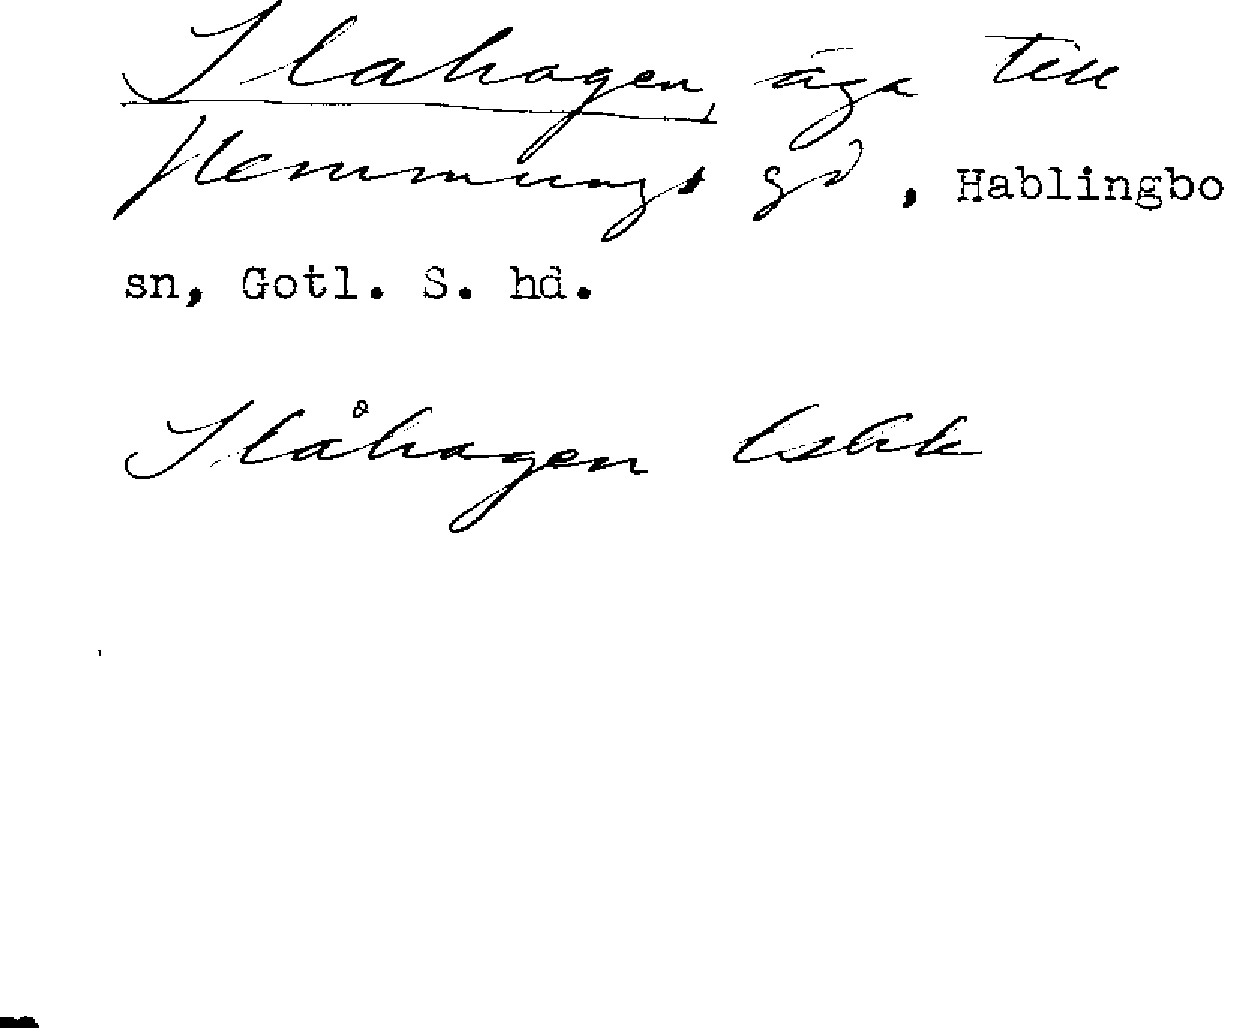 Slahagen, äga till
Hemmungs gd, Hablingbo
sn, Gotl. S. hd.
Slåhagen